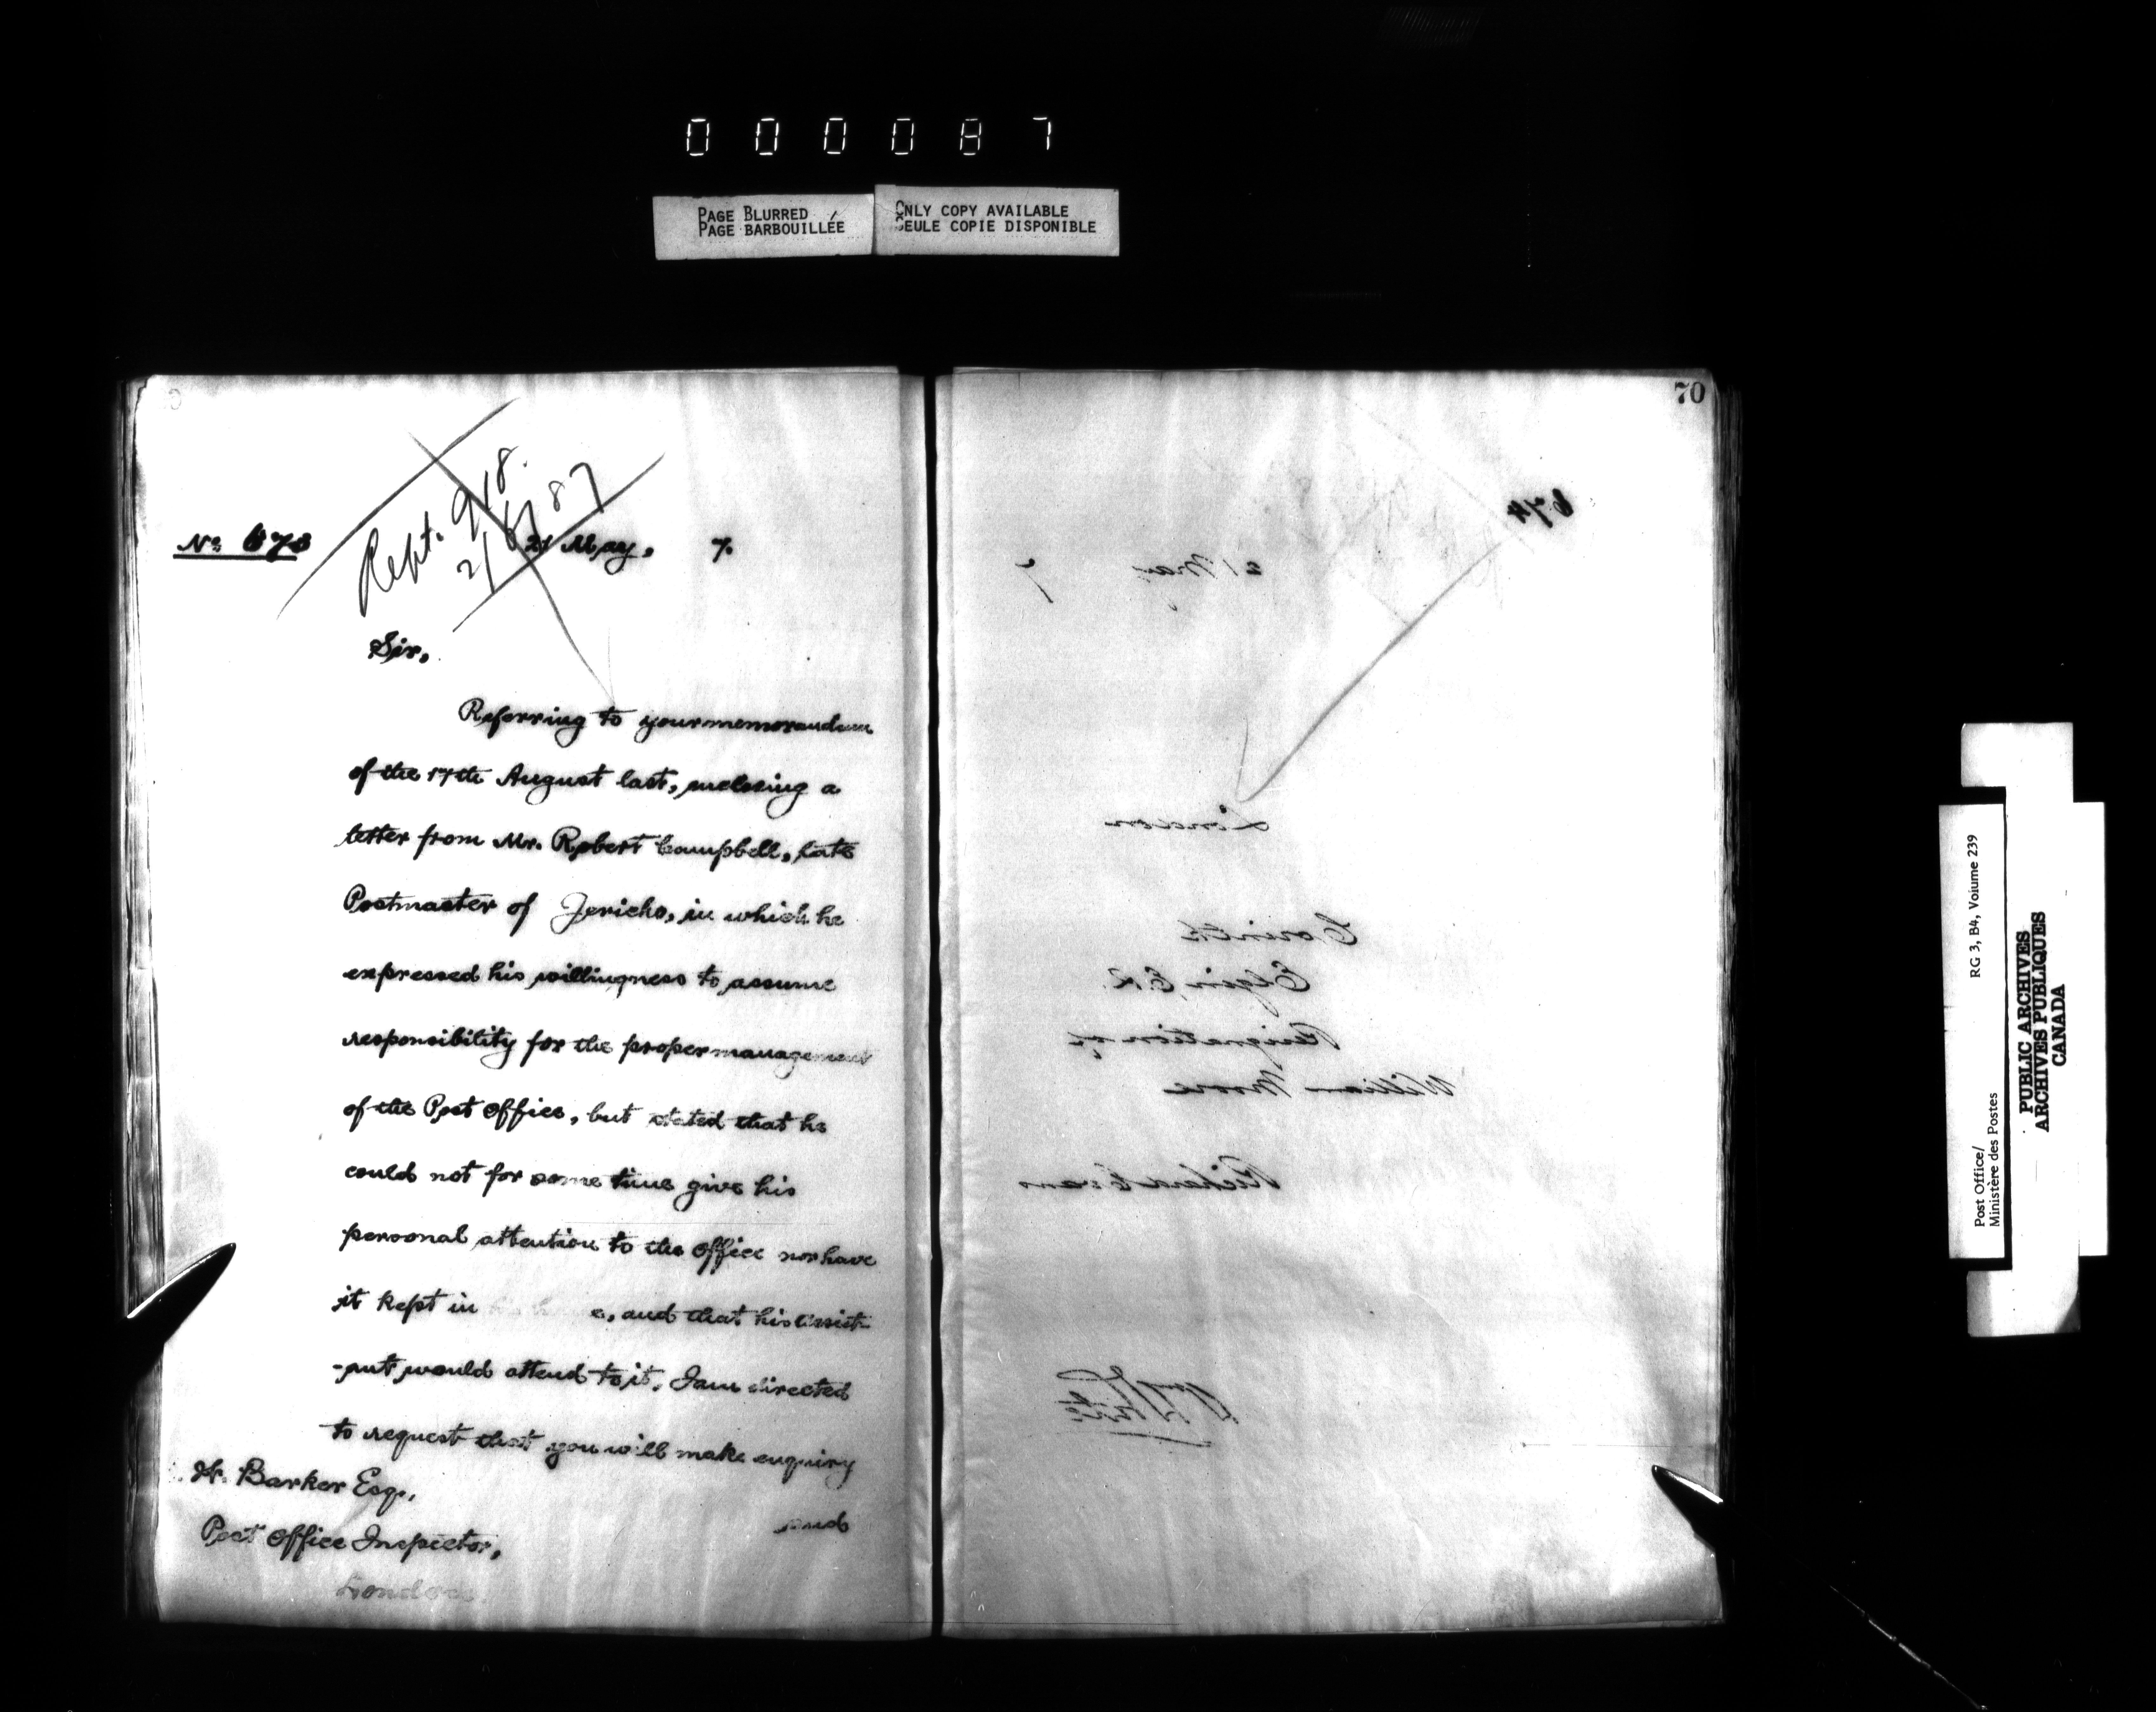 000087
PAGE BLURRED
PAGE BARBOUILLÉE
ONLY COPY AVAILABLE
SEULE COPIE DISPONIBLE
Rept. 918.
21/6/87
No 673
21 May, 7.
Sir,
Referring to your memorandum
of the 17th August last, inclosing a
letter from Mr. Robert Campbell, late
Postmaster of Jericho, in which he
expressed his willingness to assume
responsibility for the proper management
of the Post Office, but stated that he
could not for some time give his
personal attention to the Office nor have
it kept in his house, and that his assist-
-ant would attend to it, I am directed
to request that you will make enquiry
and
Barker Esq.,
Post Office Inspector,
London.
70
674
21 May 7
London
Corinth
Elgin, E.R.
Resignation of
William Moore
Richard Evans
W White
Post Office/
Ministère des Postes
RG 3, B4, Volume 239
PUBLIC ARCHIVES
ARCHIVES PUBLIQUES
CANADA